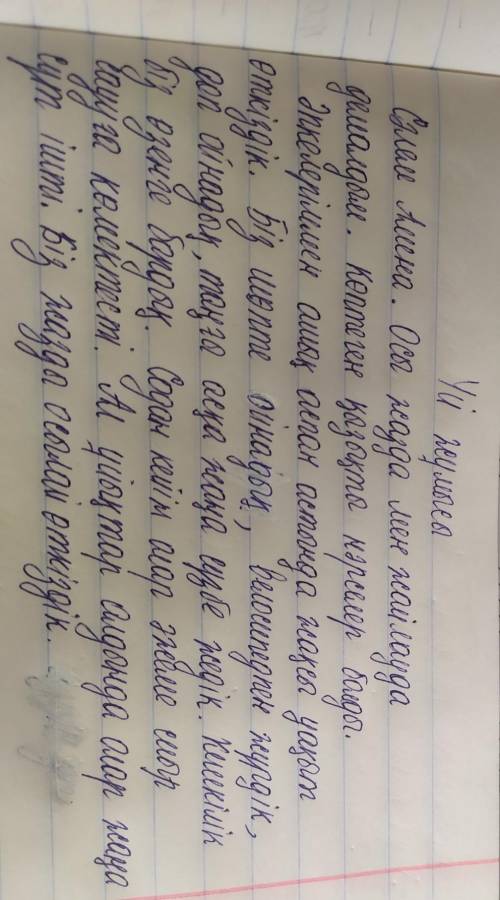 Ү/й жұмысы
Сәлем Алина. Осы жазда мен жайлауда
демалдым. Көптеген қызықты нәрселер болды.
Әпкелеріммен ашық аспан астында жақсы уақыт
өткіздік. Біз шөпте ойнадық, велосипедпен жүрдік,
доп ойнадық, таңғы асқа жаңа сүзбе жедік. Кешкілік
біз өзенге бардық. Содан кейін олар әжеме сиыр
сауға көмектесті. Ал ұйықтар алдында олар жаңа
сүт ішті. Біз жазды осылай өткіздік.